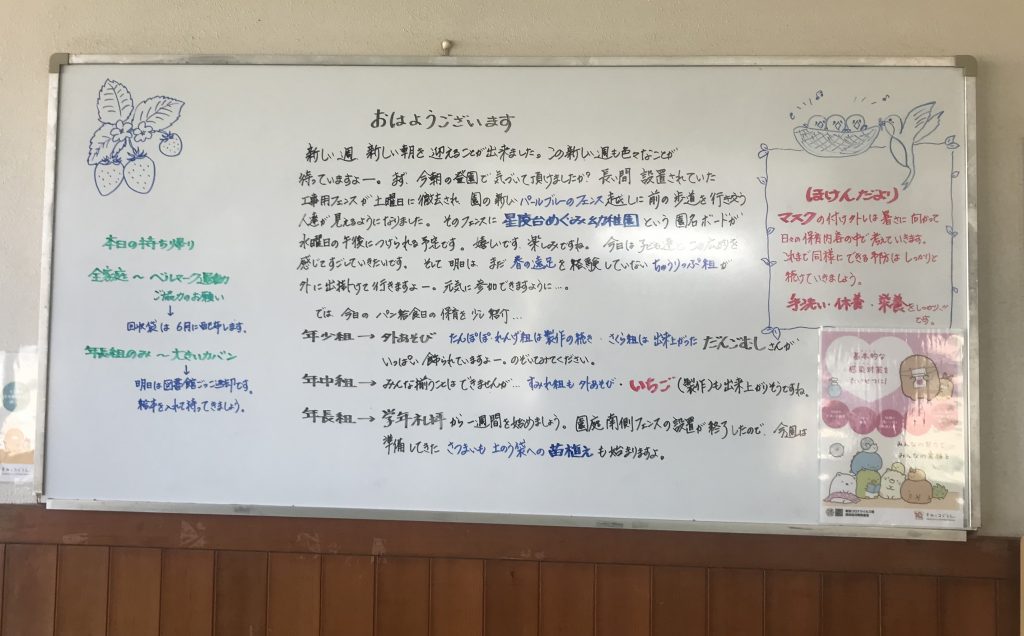 おはようございます
新しい週 新しい朝を迎えることが出来ました。この新しい週も色々なことが
待っていますよー。まず、今朝の登園で気づいて頂けましたか? 長い間 設置されていた
工事用フェンスが土曜日に撤去され 園の新しいパールブルーのフェンス越しに前の歩道を行き交う
人達が見えるようになりました。そのフェンスに 星陵台めぐみ幼稚園 という園名ボードが
水曜日の午後につけられる予定です。嬉しいです、楽しみですね。今日は子ども達と この
感じてすごしていきたいです。そして明日は、まだ 春の遠足を経験していない ちゅうりっぷ組が
外に出掛けて行きますよー。元気に参加できますように…。
では 今日の パン給食日の保育を少し紹介…
年少組→ 外あそび たんぽぽれんげ組は製作の続き・さくら組は出来上がった だんごむしさんが
いっぱい飾られていますよー。のぞいてみてください。
年中組→ みんな揃うことはできませんが… すみれ組も外あそび・いちご(製作)も出来上がりそうですね。
年長組→ 学年礼拝から一週間を始めましょう。園庭南側フェンスの設置が終了したので、今週は
準備してきた さつまいも 土のう袋への 苗植えも始まりますよ。
本日の持ち帰り
全家庭〜 ベルマーク運動
ご協力のお願い
↓
回収袋は 6月に配布します。
年長組のみ〜 大きいカバン
↓
明日は図書館ごっこ返却です。
絵本を入れて持ってきましょう。
ほけんだより
マスクの付け外しは暑さに向かって
日々の保育内容の中で考えていきます。
これまで同様にできる予防はしっかりと
続けていきましょう。
手洗い・休養・栄養をしっかり
です。
基本的な
感染対策を
たいせつに!
みんなの努力で
みんなの笑顔を